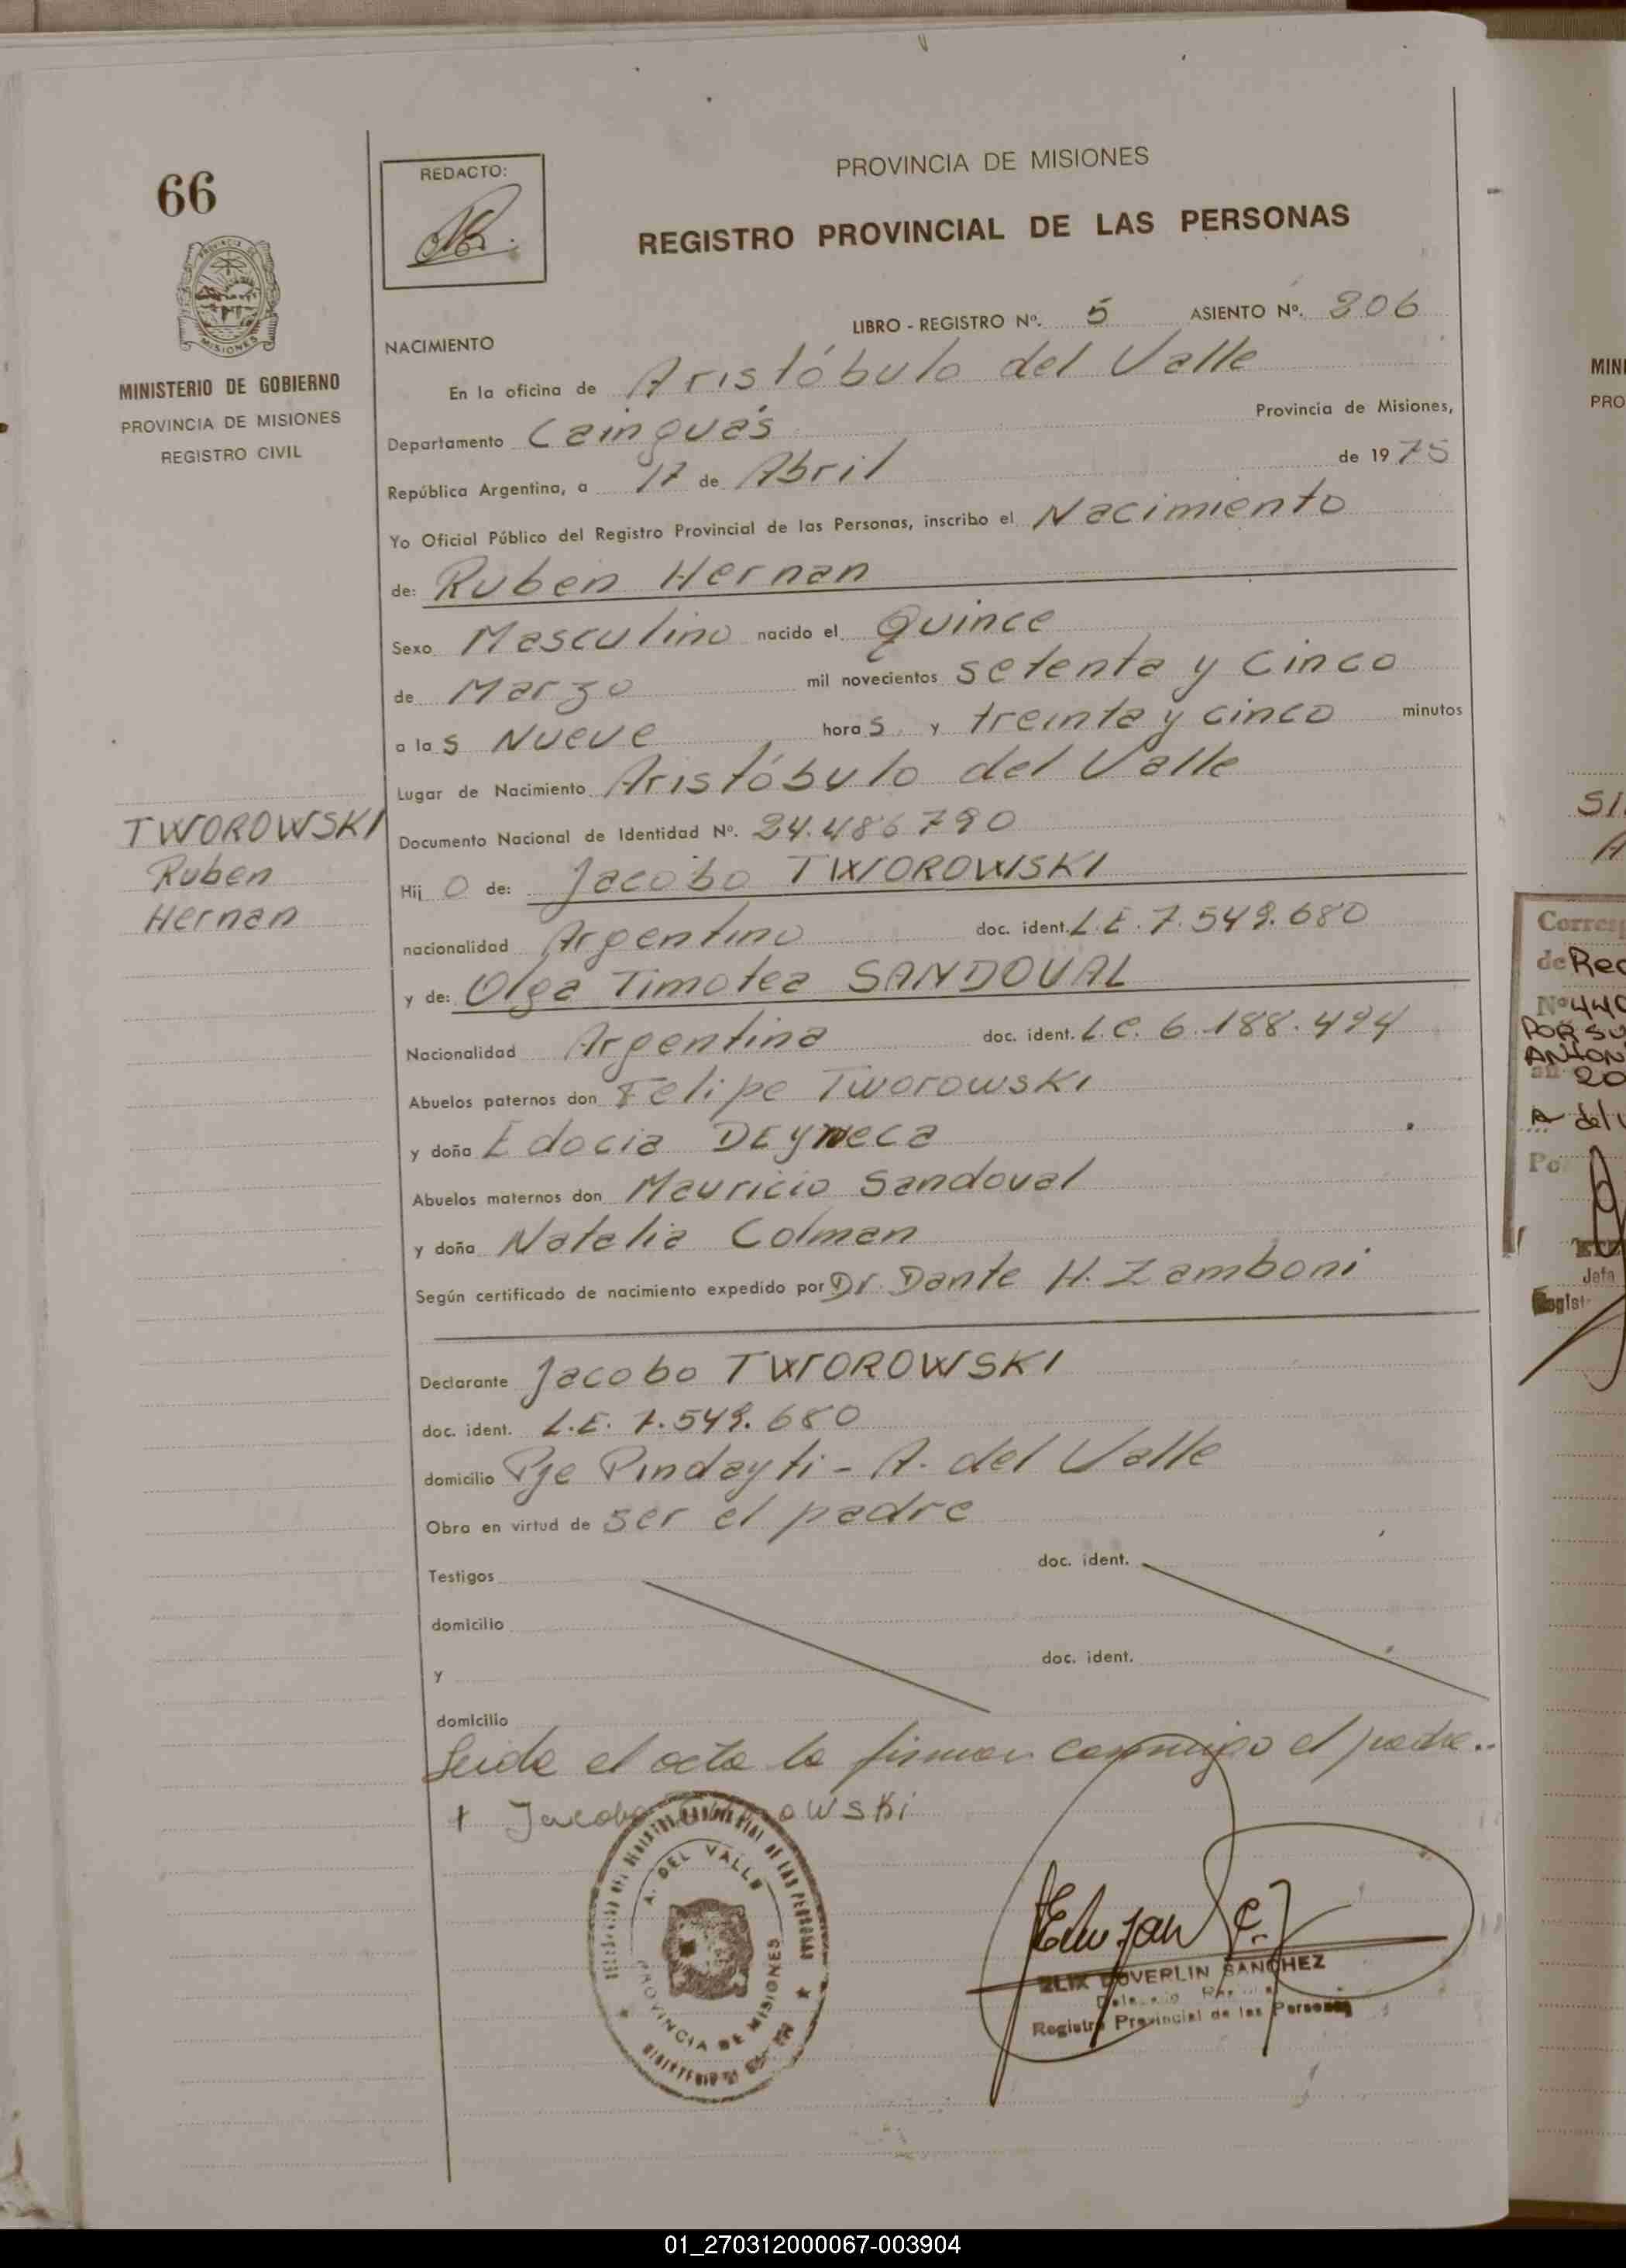 66
REDACTO:
PROVINCIA DE MISIONES
REGISTRO PROVINCIAL DE LAS PERSONAS
LIBRO - REGISTRO Nº. 5 ASIENTO Nº. 306
MINISTERIO DE GOBIERNO
PROVINCIA DE MISIONES
REGISTRO CIVIL
NACIMIENTO
En la oficina de Aristóbulo del Valle
Departamento Cainguás Provincia de Misiones,
República Argentina, a 17 de Abril de 1975
Yo Oficial Público del Registro Provincial de las Personas, inscribo el Nacimiento
de: Ruben Hernan
Sexo Masculino nacido el Quince
de Marzo mil novecientos setenta y cinco
a las Nueve horas y treinta y cinco minutos
Lugar de Nacimiento Aristóbulo del Valle
TWOROWSKI
Ruben
Hernan
Documento Nacional de Identidad Nº. 24.486790
Hijo de: Jacobo TWOROWSKI
nacionalidad Argentino doc. ident. L.E. 7.549.680
y de: Olga Timotea SANDOVAL
Nacionalidad Argentina doc. ident. L.C. 6.188.494
Abuelos paternos don Felipe Tworowski
y doña Edocia DEyNeca
Abuelos maternos don Mauricio Sandoval
y doña Natalia Colman
Según certificado de nacimiento expedido por Dr. Dante H. Zamboni
Declarante Jacobo TWOROWSKI
doc. ident. L.E. 7.549.680
domicilio Pje Pindayti - A. del Valle
Obra en virtud de ser el padre
Testigos doc. ident.
domicilio
y doc. ident.
domicilio
Leida el acta la firman conmigo el padre..
Jacobo
A. DEL VALLE
PROVINCIA DE MISIONES
DOVERLIN SANCHEZ
Registro Provincial de las Personas
01_270312000067-003904